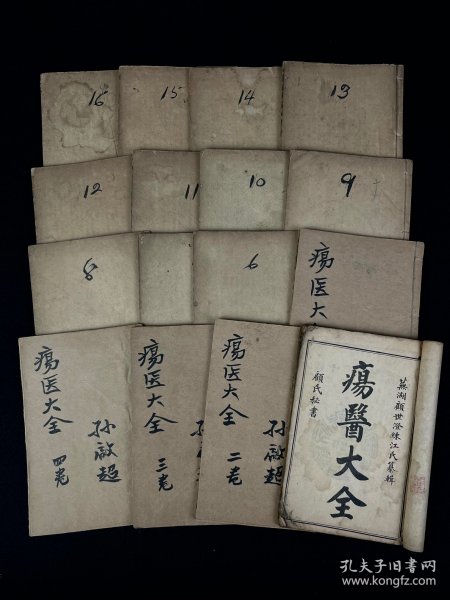 16
15
14
13
12
11
10
9
8
6
瘍医大
瘍医大全
四卷
瘍医大全
三卷
孙
瘍医大全
二卷
孙啟超
蕪湖顧世澄練江氏纂輯
瘍醫大全
顧氏秘書
孔夫子旧书网
www.kongfz.com